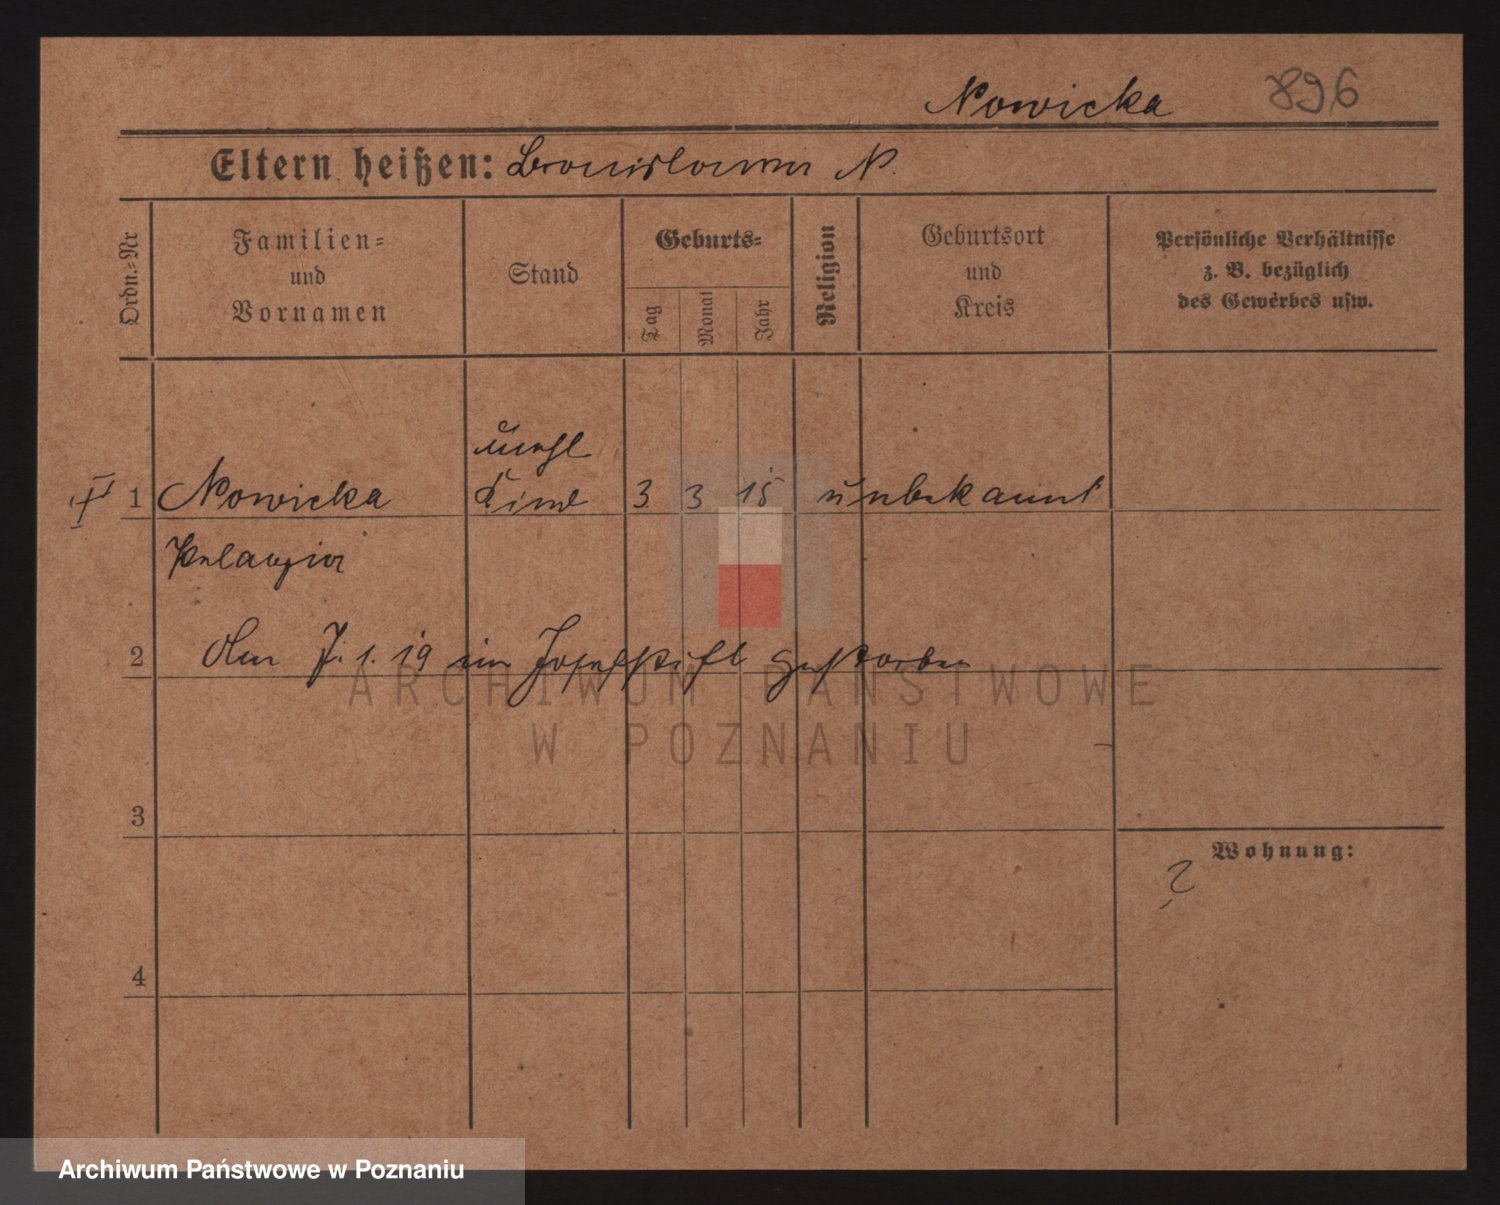 Nowicka 896
Eltern heißen: Bronislawa N.
Ordn.-Nr
Familien-
und
Vornamen
Stand
Geburts-
Tag
Monat
Jahr
Religion
Geburtsort
und
Kreis
Persönliche Verhältnisse
z. B. bezüglich
des Gewerbes usw.
unehl
1 Nowicka Kind 3 3 15 unbekannt
Pelagia
2 Am 7. 1. 19 im Josephstift gestorben
ARCHIWUM PAŃSTWOWE
W POZNANIU
3
Wohnung:
?
4
Archiwum Państwowe w Poznaniu